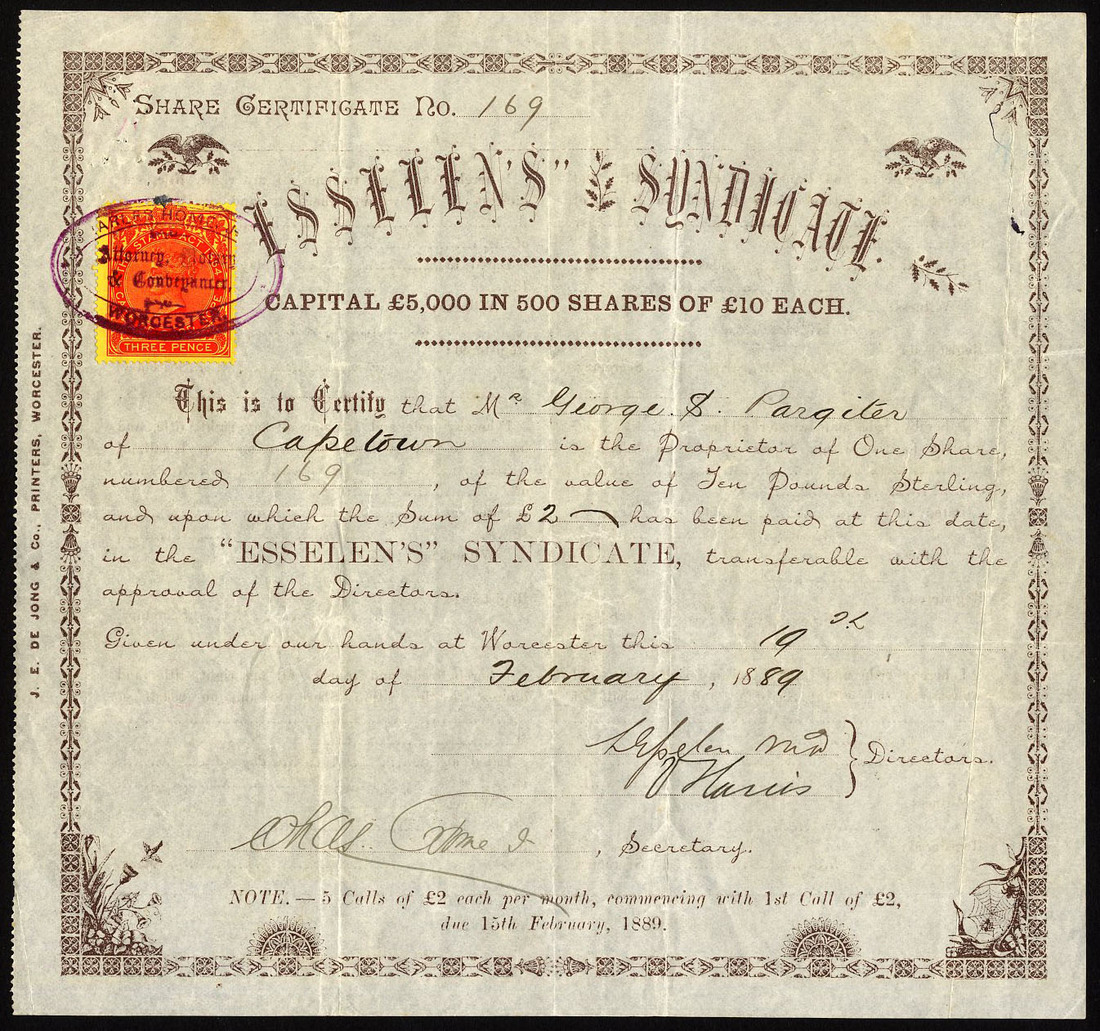 SHARE CERTIFICATE No. 169
"ESSELEN'S" SYNDICATE.
CAPITAL £5,000 IN 500 SHARES OF £10 EACH.
STAMP ACT 1864
Attorney, Notary
& Conveyancer
WORCESTER
THREE PENCE
This is to Certify that Mr George S. Pargiter
of Capetown is the Proprietor of One Share,
numbered 169, of the value of Ten Pounds Sterling,
and upon which the Sum of £2 has been paid at this date,
in the "ESSELEN'S" SYNDICATE, transferable with the
approval of the Directors.
Given under our hands at Worcester this 19th
day of February, 1889
Esselen MD
Harris
Directors.
Chas.
, Secretary.
NOTE.—5 Calls of £2 each per month, commencing with 1st Call of £2,
due 15th February, 1889.
J. E. DE JONG & Co., PRINTERS, WORCESTER.